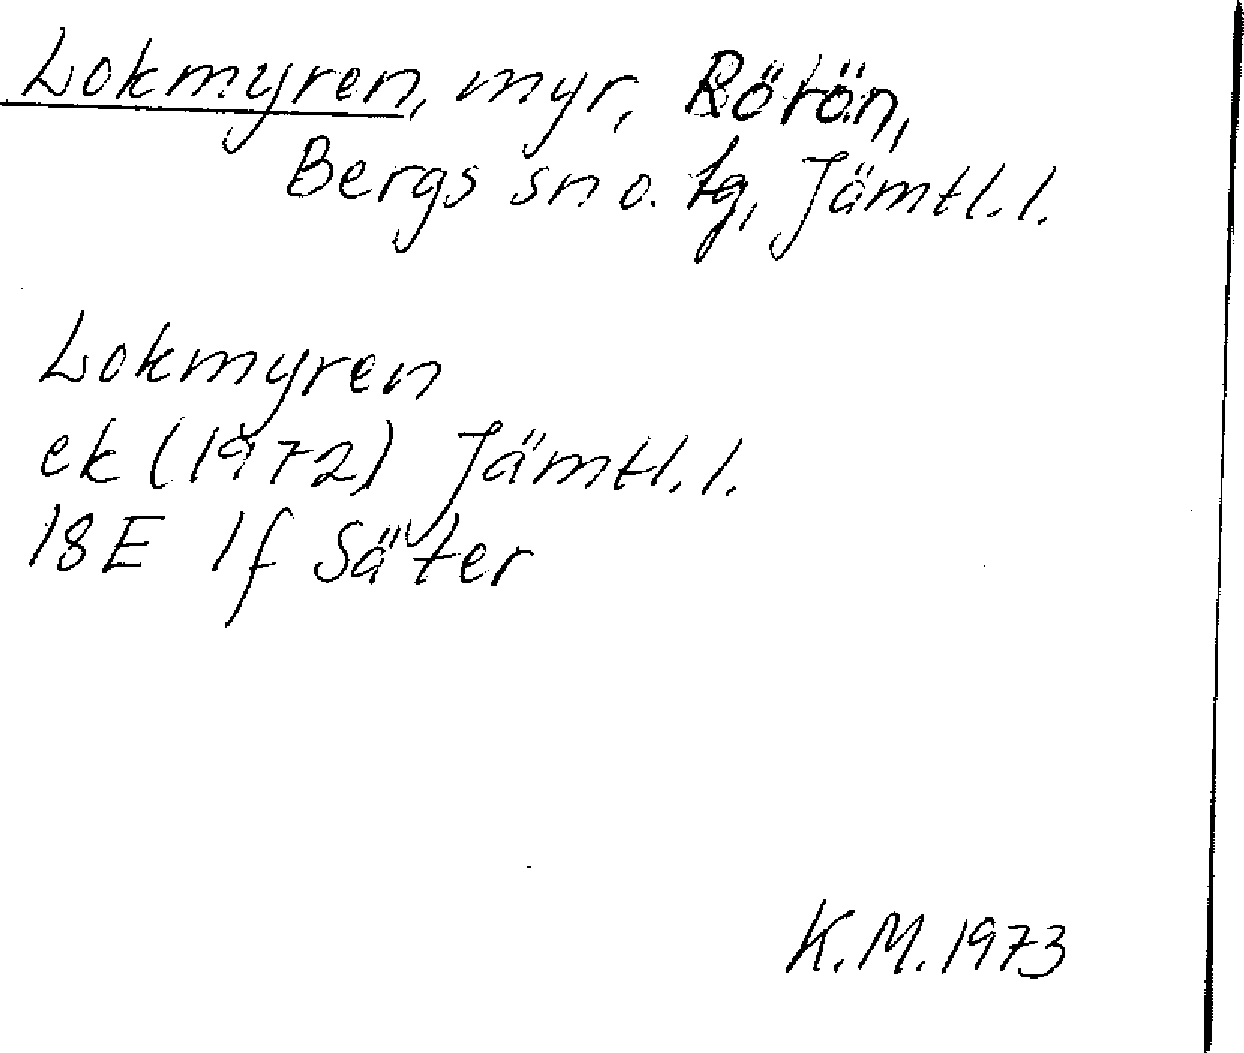 Lokmyren, myr, Rötön,
Bergs sn o. tg, Jämtl. l.
Lokmyren
ek (1972) Jämtl. l.
18E 1f Säter
K. M. 1973